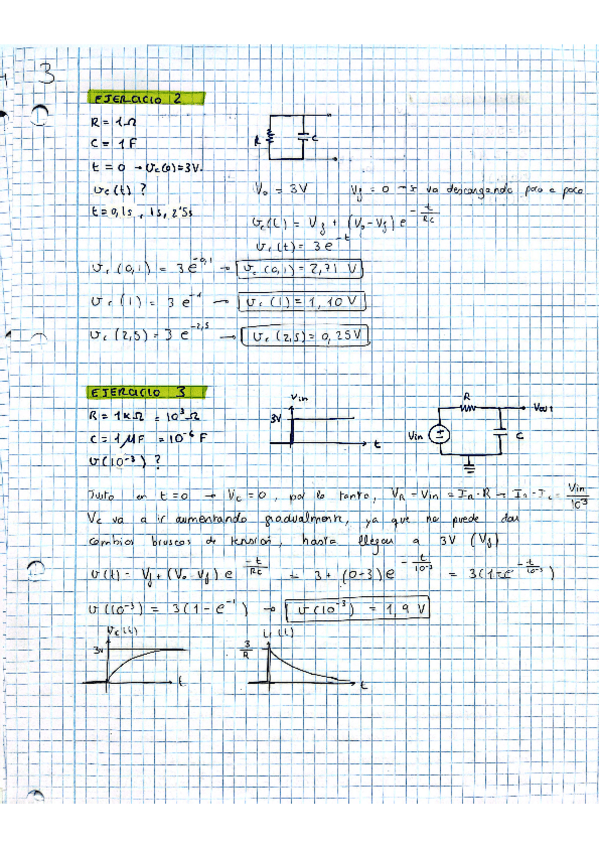 3
EJERCICIO 2
R = 1Ω
C = 1F
R C
t = 0 → Vc(0)=3V.
Vc(t) ?
V₀ = 3V Vf = 0 → va descargando poco a poco
t = 0,1s, 1s, 2'5s
Vc(t) = Vf + (V₀-Vf) e^(-t/RC)
Vc(t) = 3 e^(-t)
Vc(0,1) = 3 e^(-0,1) → Vc(0,1) = 2,71 V
Vc(1) = 3 e^(-1) → Vc(1) = 1,10 V
Vc(2,5) = 3 e^(-2,5) → Vc(2,5) = 0,25V
EJERCICIO 3
R = 1KΩ = 10³ Ω
C = 1μF = 10⁻⁶ F
V(10⁻³) ?
Vin
3V
t
R
Vout
Vin
C
Justo en t=0 → Vc = 0, por lo tanto, VR = Vin = IR · R → Vin/10³
Vc va a ir aumentando gradualmente, ya que no puede dar
cambios bruscos de tensión, hasta llegar a 3V (Vf)
V(t) = Vf + (V₀-Vf) e^(-t/RC) = 3 + (0-3) e^(-t/10⁻³) = 3(1-e^(-t/10⁻³))
V(10⁻³) = 3(1 - e⁻¹) → V(10⁻³) = 1,9 V
Vc(t)
3V
t
3/R
t